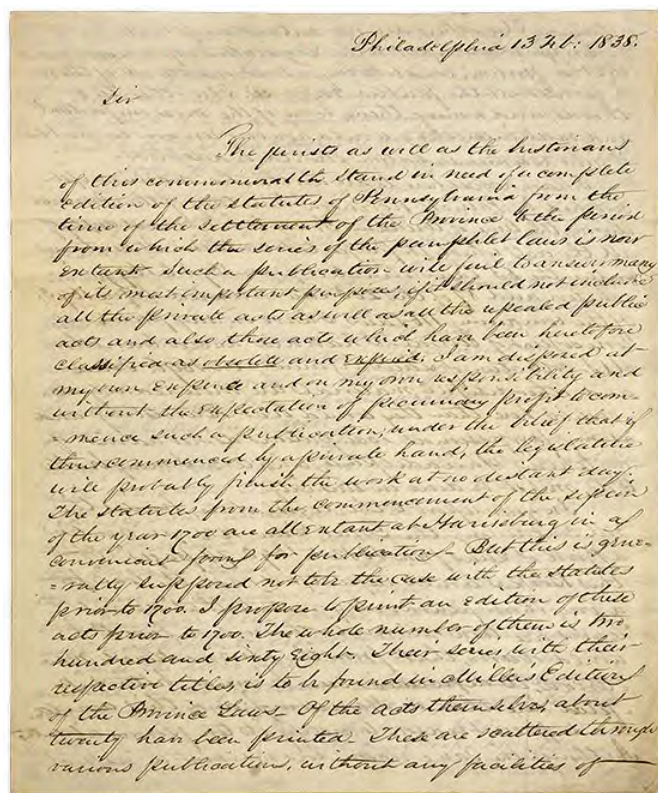 Philadelphia 13 Feb: 1838.
Sir
The jurists as well as the historians
of this commonwealth stand in need of a complete
edition of the statutes of Pennsylvania from the
time of the settlement of the Province to the period
from which the series of the pamphlet laws is now
extant. Such a publication will fail to answer many
of its most important purposes, if it should not include
all the private acts as well as all the repealed public
acts and also those acts which have been heretofore
classified as obsolete and expired. I am disposed at
my own expence and on my own responsibility and
without the expectation of pecuniary profit to com-
=mence such a publication, under the belief that if
thus commenced by a private hand, the legislature
will probably finish the work at no distant day.
The statutes from the commencement of the session
of the year 1700 are all extant at Harrisburg in a
convenient form for publication – But this is gene-
=rally supposed not to be the case with the statutes
prior to 1700. I propose to print an edition of these
acts prior to 1700. The whole number of them is two
hundred and sixty Eight. Their series with their
respective titles, is to be found in Miller's Edition
of the Province Laws – Of the acts themselves, about
twenty have been printed. These are scattered through
various publications, without any facilities of